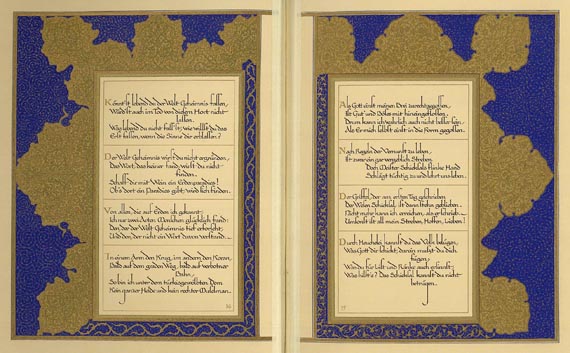 Könnt'st lebend du der Welt Geheimnis fassen,
Würd'st auch im Tod von diesem Hort nicht
lassen.
Weg lebend du nicht fass'st, wie willst du das
Erst fassen, wenn die Sinne dir erblassen?
Der Welt Geheimnis wirst du nicht ergründen,
Das Wort, das keiner fand, wirst du nicht
finden.
Schaff' dir mit Wein ein Erdenparadies!
Ob's dort ein Paradies gibt, wird sich finden.
Von allen, die auf Erden ich gekannt,
Ich nur zwei Arten Menschen glücklich fand:
Den, der der Welt Geheimnis tief erforscht,
Und den, der nicht ein Wort davon verstand.
In einem Arm den Krug, im andern den Koran,
Bald auf dem graden Weg, bald auf verbotner
Bahn,
So bin ich unter dem türkisgewölbten Dom
Kein ganzer Heide und kein rechter Muselman.
36
Als Gott einst meinen Drei zurechtgegossen,
Ist Gut und Böses mit hineingeflossen,
Drum kann ich wahrlich auch nicht besser sein,
Als Er mich selbst einst in die Form gegossen.
Nach Regeln der Vernunft zu leben,
Ist zwar ein gar vergeblich Streben,
Doch Meister Schicksals flinke Hand
Schlägt tüchtig zu und lehrt uns leben.
Der Griffel, der am ersten Tag geschrieben
Der Wesen Schicksal, ist dann stehn geblieben.
Nicht mehr kann ich erreichen, als er schrieb.
Umsonst ist all mein Streben, Hoffen, Lieben!
Durch Heuchelei kannst du das Volk belügen,
Was Gott dir schickt, darein musst du dich
fügen;
Was du für List und Ränke auch ersannst,
Was hilft's? Das Schicksal kannst du nicht
betrügen.